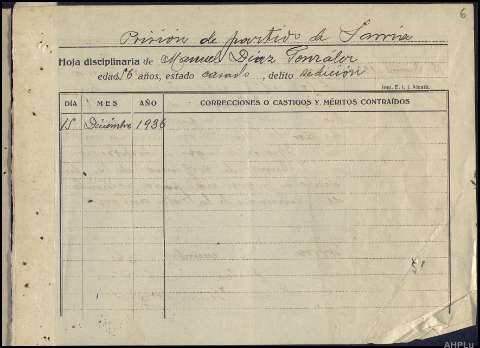 6
Prision de partido de Sarria
Hoja disciplinaria de Manuel Díaz González
edad 56 años, estado casado, delito sedición
Imp. E. T. J. Alcalá.
DÍA MES AÑO CORRECCIONES O CASTIGOS Y MÉRITOS CONTRAÍDOS
15 Diciembre 1936
AHPLu